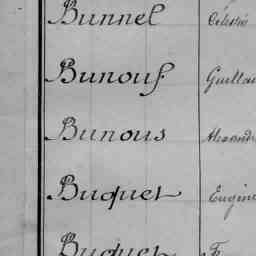 Bunnel Célestin
Bunouf Guillau
Bunous Alexandr
Buquet Eugène
Buquet F